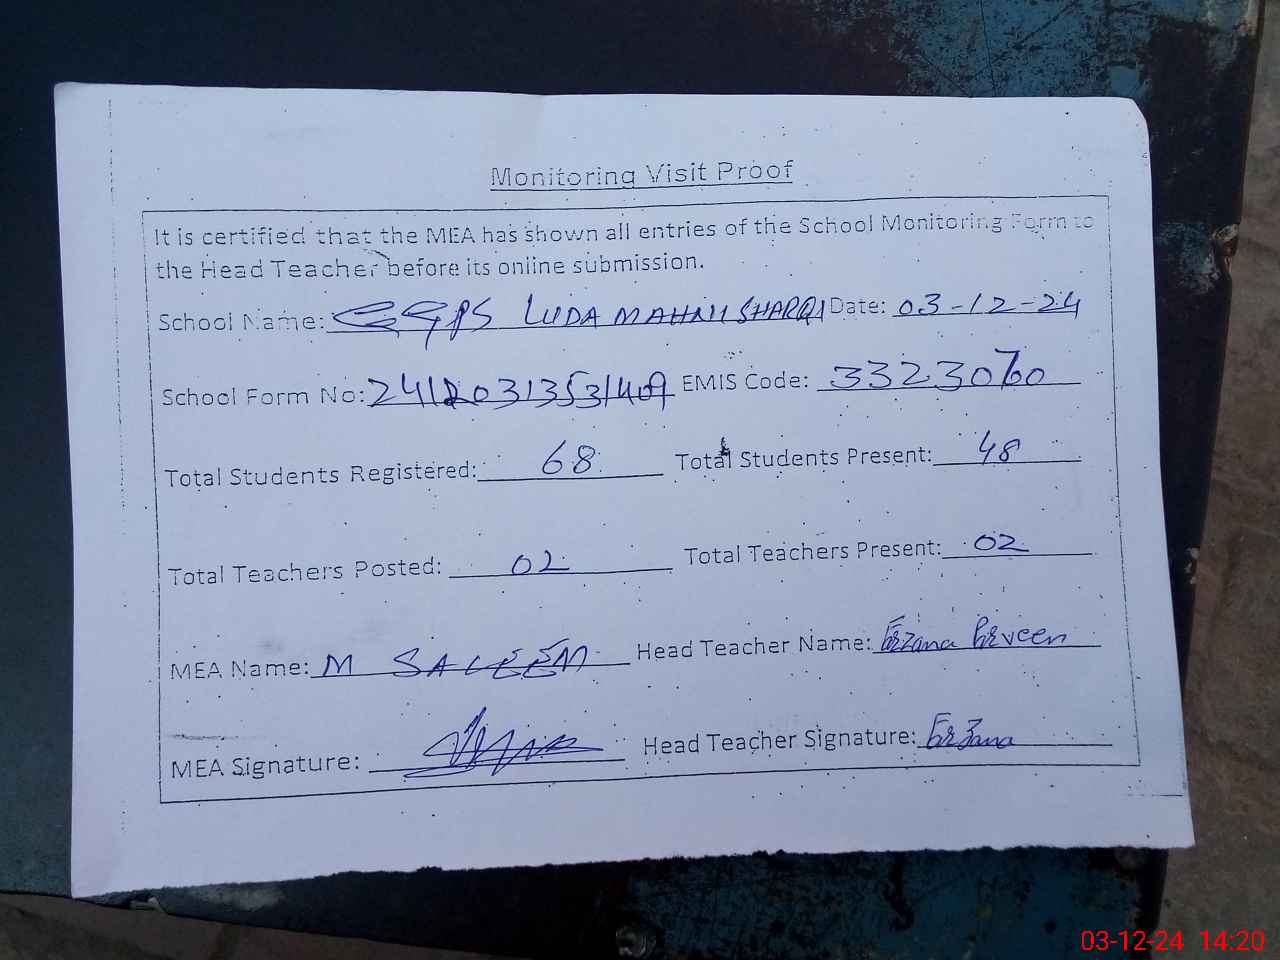 Monitoring Visit Proof
It is certified that the MEA has shown all entries of the School Monitoring Form to
the Head Teacher before its online submission.
School Name: GGPS LUDA MAHNI SHARQI Date: 03-12-24
School Form No: EMIS Code: 33230760
Total Students Registered: 68 Total Students Present: 48
Total Teachers Posted: 02 Total Teachers Present: 02
MEA Name: M SALEEM Head Teacher Name: Farzana Parveen
MEA Signature: Head Teacher Signature: Farzana
03-12-24 14:20